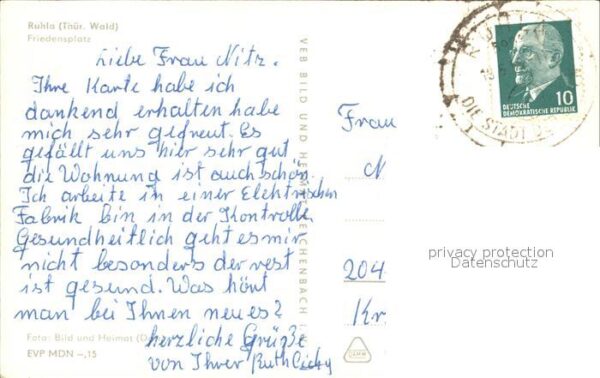 Ruhla (Thür. Wald)
Friedensplatz
Liebe Frau Nitz.
Ihre Karte habe ich
dankend erhalten habe
mich sehr gefreut. Es
gefällt uns hier sehr gut
die Wohnung ist auch schön.
Ich arbeite in einer Elektrischen
Fabrik bin in der Kontrolle,
Gesundheitlich geht es mir
nicht besonders der rest
ist gesund. Was hört
man bei Ihnen neues?
herzliche Grüße
von Ihrer Ruth
Foto: Bild und Heimat
EVP MDN –,15
VEB BILD UND HEIMAT REICHENBACH
Frau
N
204
Kr
DEUTSCHE
DEMOKRATISCHE REPUBLIK
10
DIE STADT
privacy protection
Datenschutz